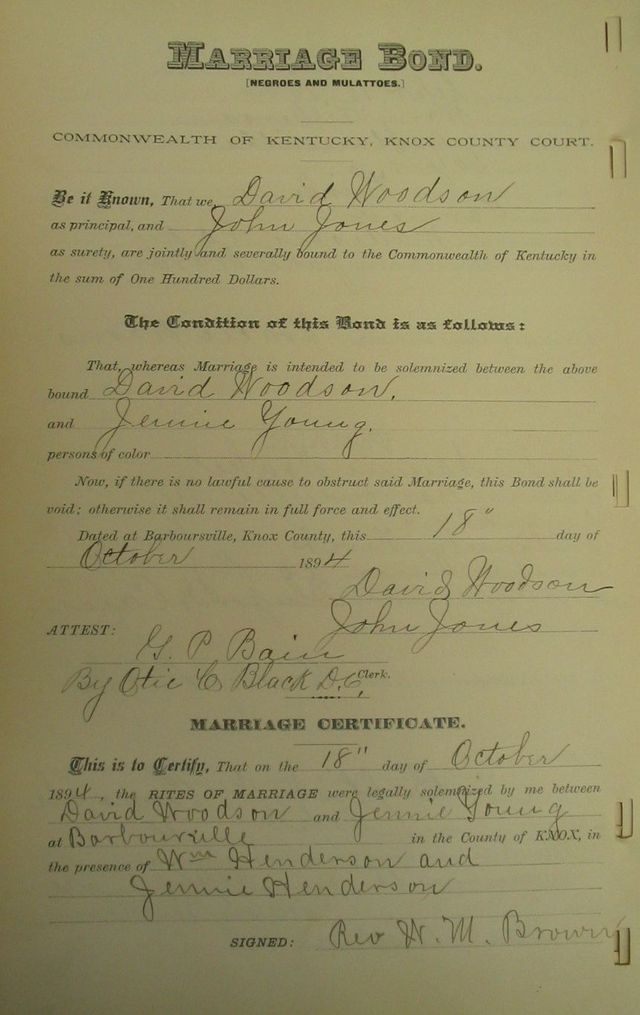 MARRIAGE BOND.
[NEGROES AND MULATTOES.]
COMMONWEALTH OF KENTUCKY, KNOX COUNTY COURT.
Be it Known, That we, David Woodson
as principal, and John Jones
as surety, are jointly and severally bound to the Commonwealth of Kentucky in
the sum of One Hundred Dollars.
The Condition of this Bond is as follows:
That, whereas Marriage is intended to be solemnized between the above
bound David Woodson,
and Jennie Young.
persons of color
Now, if there is no lawful cause to obstruct said Marriage, this Bond shall be
void; otherwise it shall remain in full force and effect.
Dated at Barboursville, Knox County, this 18" day of
October 1894
David Woodson
John Jones
ATTEST:
G. P. Bain
By Otie C Black D.C. Clerk.
MARRIAGE CERTIFICATE.
This is to Certify, That on the 18" day of October
1894, the RITES OF MARRIAGE were legally solemnized by me between
David Woodson and Jennie Young
at Barbourville in the County of KNOX, in
the presence of Wm Henderson and
Jennie Henderson
SIGNED: Rev W. M. Brown